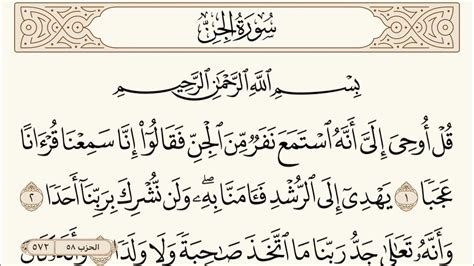 سُورَةُ الجِنِّ
بِسْمِ ٱللَّهِ ٱلرَّحْمَٰنِ ٱلرَّحِيمِ
قُلْ أُوحِىَ إِلَىَّ أَنَّهُ ٱسْتَمَعَ نَفَرٌ مِّنَ ٱلْجِنِّ فَقَالُوٓا۟ إِنَّا سَمِعْنَا قُرْءَانًا
عَجَبًا ١ يَهْدِىٓ إِلَى ٱلرُّشْدِ فَـَٔامَنَّا بِهِۦ وَلَن نُّشْرِكَ بِرَبِّنَآ أَحَدًا ٢
وَأَنَّهُۥ تَعَٰلَىٰ جَدُّ رَبِّنَا مَا ٱتَّخَذَ صَٰحِبَةً وَلَا وَلَدًا
الحزب ٥٨ ٥٧٢